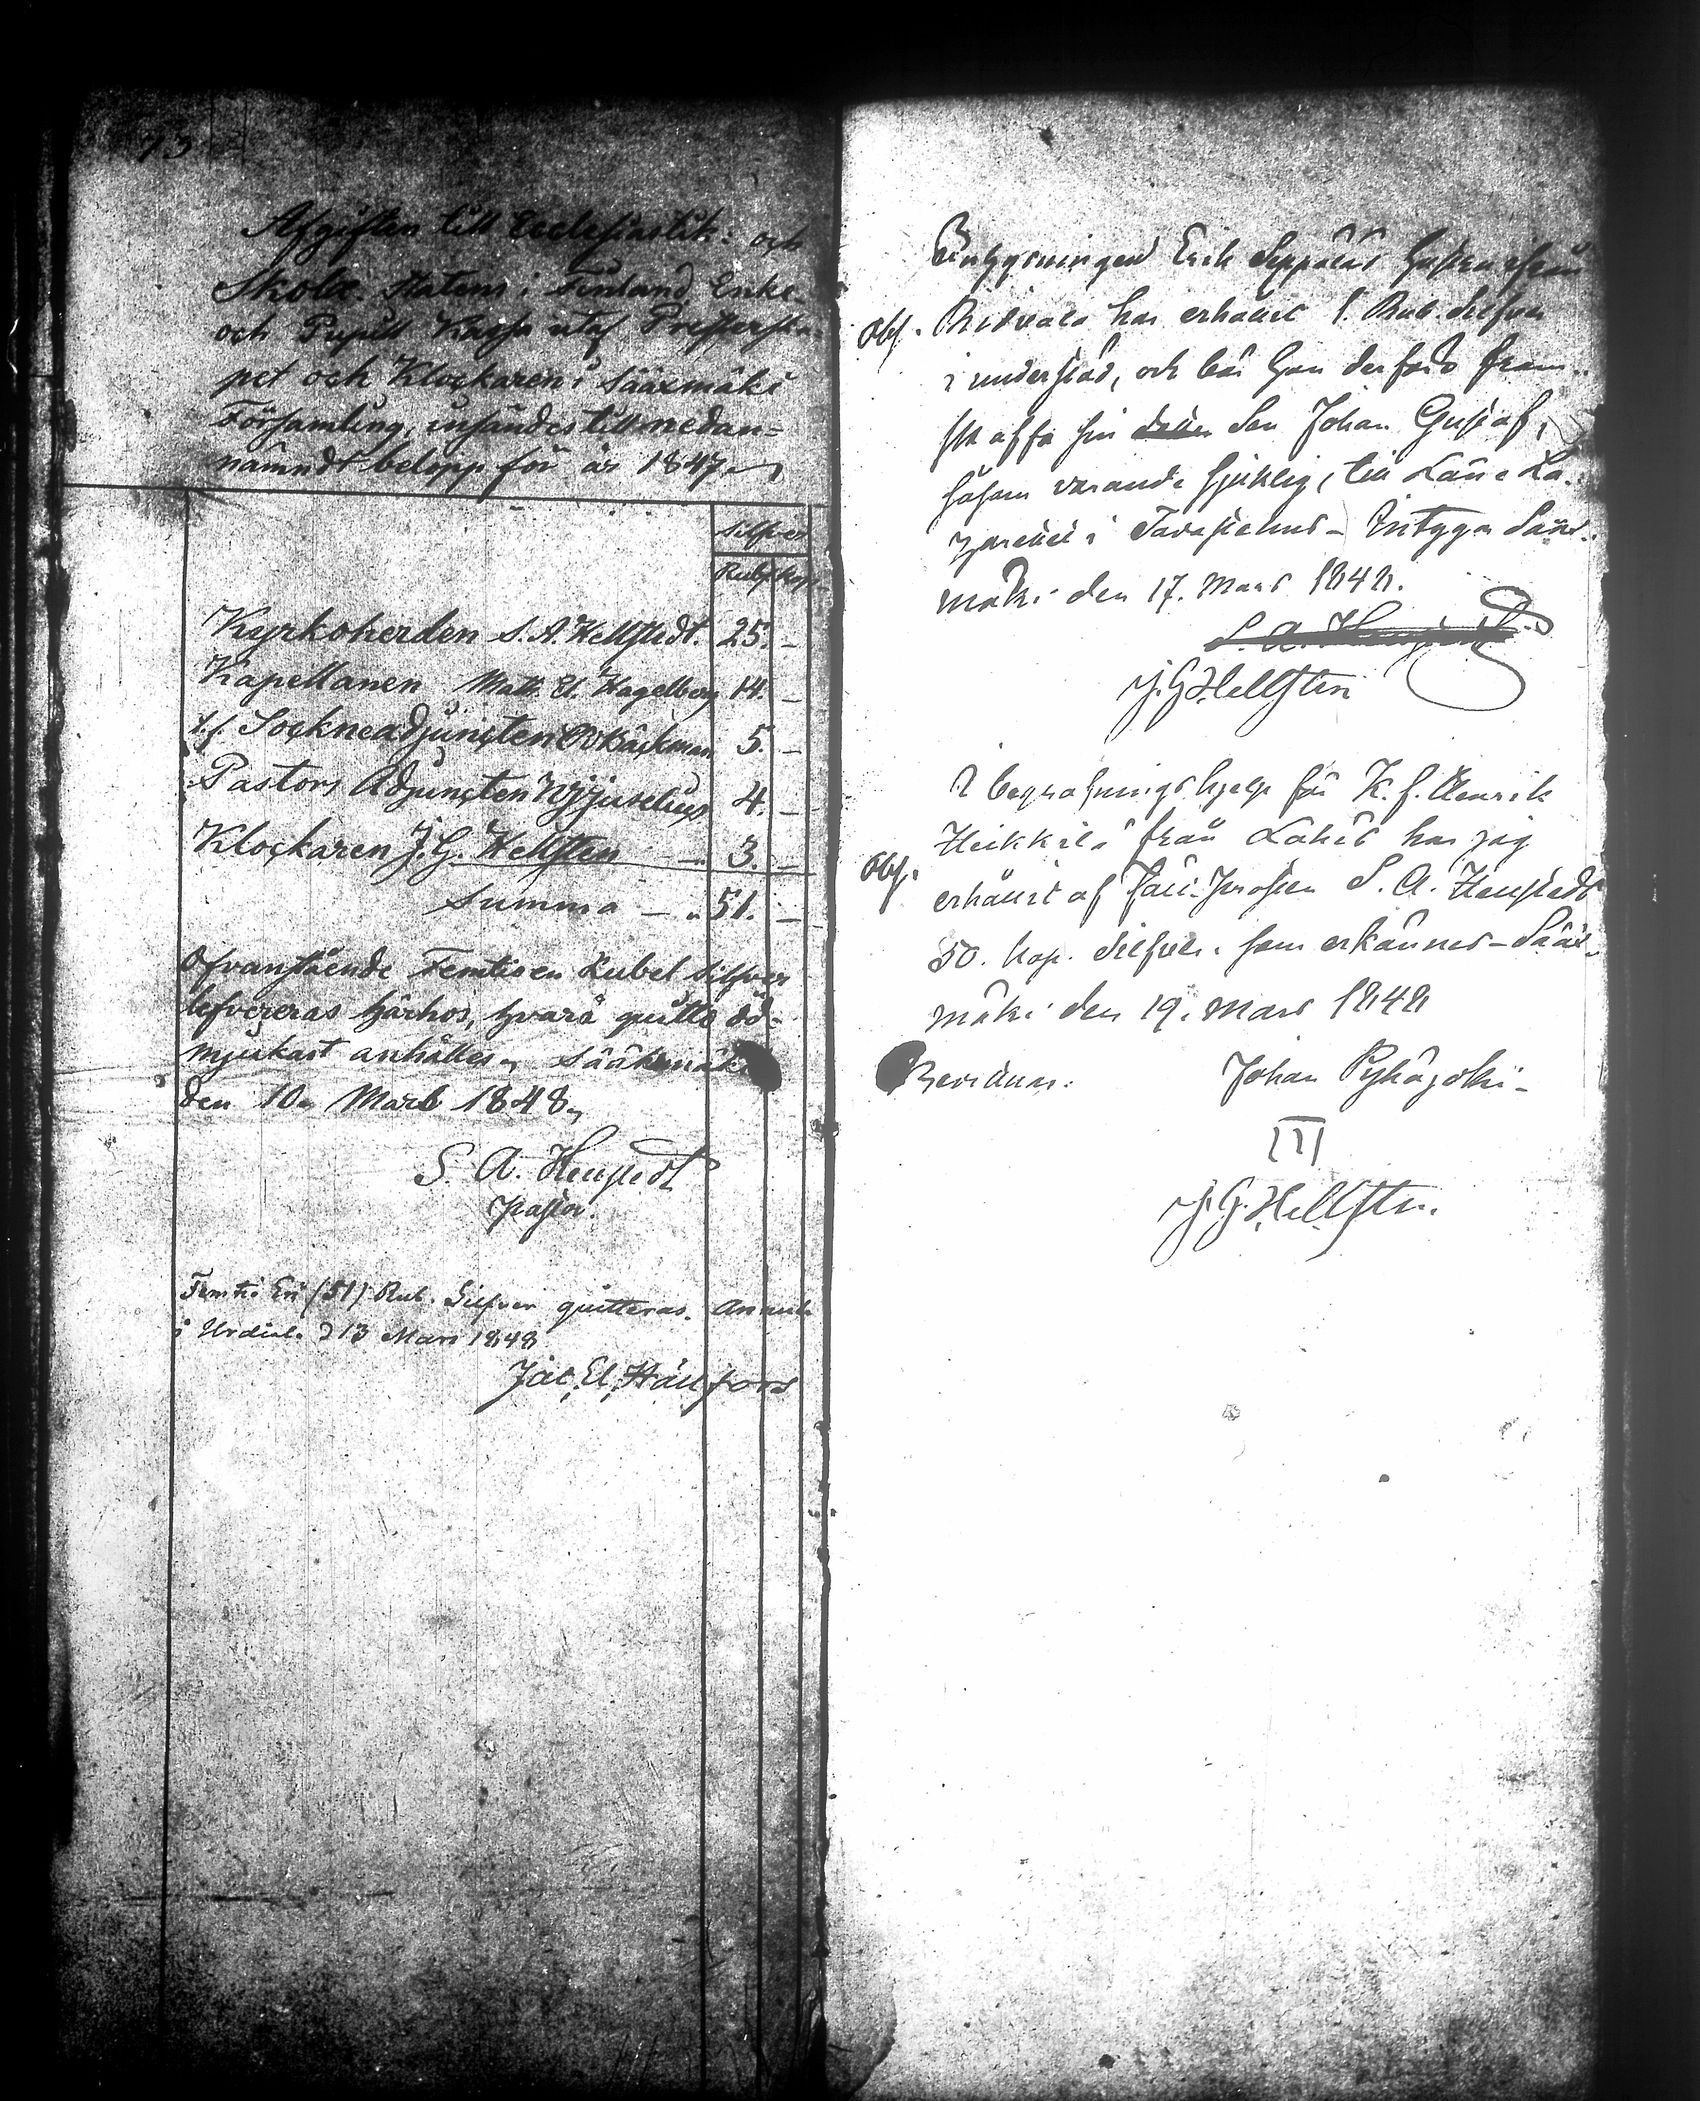 73
Afgiften till Ecclesiastik: och
Skole Statens i Finland Enke-
och Pupill Kassa utaf Presterska-
pet och Klockaren i Sääxmäki
Församling, insändes till nedan-
nämndt belopp för år 1847.
Silfver
Rub. Kop.
Kyrkoherden S. A. Hellstedt. 25. -
Kapellanen Matt. El. Hagelberg 14. -
t.f. Sockneadjuncten Bäckman 5. -
Pastors Adjuncten Juselius 4. -
Klockaren J. G. Hellsten 3. -
Summa - 51. -
Ofvanstående Femtioen Rubel Silfver
lefvereras härhos, hvarå quitto öd-
mjukast anhålles. Sääksmäki
den 10. Mars 1848.
S. A. Hellstedt
Pastor.
Femtio En (51) Rub. Silfver quitteras.
i Urdiala d 13 Mars 1848
Jac. El. Hällfors
Erik Seppälä
Obs. Ridvala har erhållit 1. Rub. Silfver
i understöd, och bör han derföre fram-
skaffa sin Son Johan Gustaf,
såsom varande sjuklig, till Läne La-
zarettet i Tavastehus - Intygar Sääx-
mäki den 17. Mars 1848.
S. A. Hellstedt
J. G. Hellsten
I begrafningshjelp för K. f. Henrik
Heikkilä från Lahis har jag
Obs. erhållit af Prosten S. A. Hellstedt
50. Kop. Silfver, som erkännes - Sääx-
mäki den 19. Mars 1848
Bevidnar: Johan Pyhäjoki -
J. G. Hellsten.